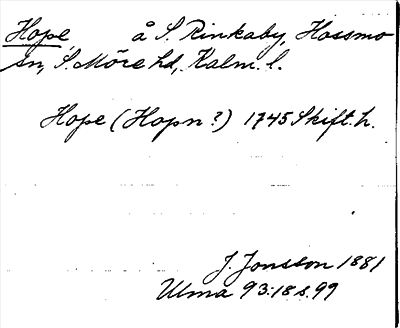 Hope, å S. Rinkaby, Hossmo
sn, S. Möre hd, Kalm. l.
Hope (Hopn?) 1745 Skift. h.
J. Jonsson 1881
Ulma 93:18 s. 99